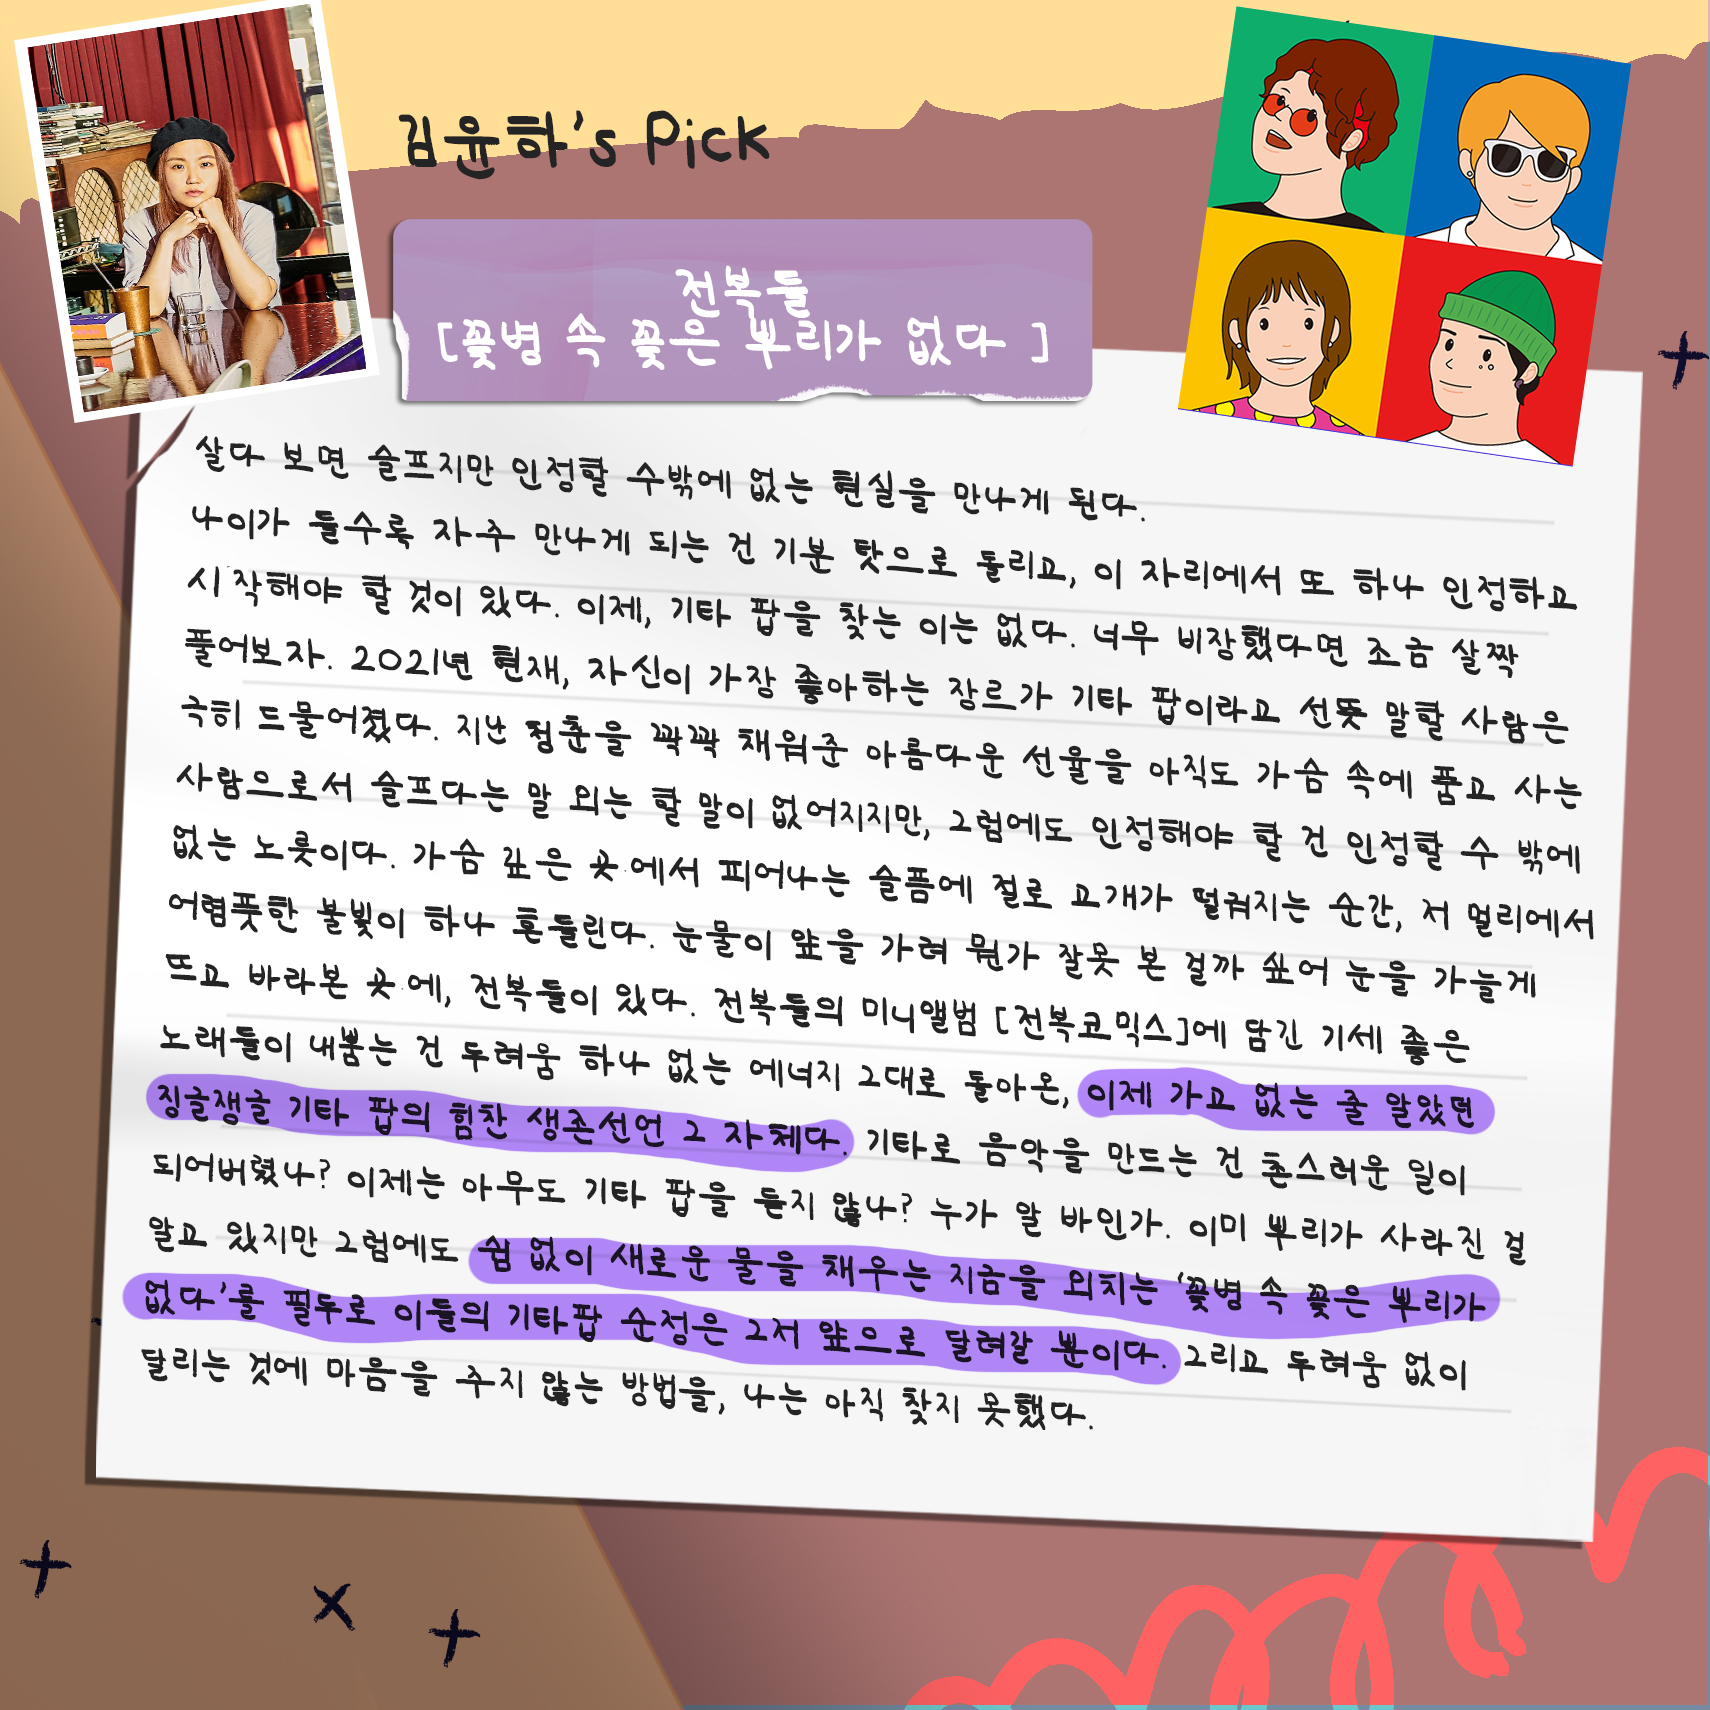 김윤하's Pick
전복들
[꽃병 속 꽃은 뿌리가 없다 ]
살다 보면 슬프지만 인정할 수밖에 없는 현실을 만나게 된다.
나이가 들수록 자주 만나게 되는 건 기분 탓으로 돌리고, 이 자리에서 또 하나 인정하고
시작해야 할 것이 있다. 이제, 기타 팝을 찾는 이는 없다. 너무 비장했다면 조금 살짝
풀어보자. 2021년 현재, 자신이 가장 좋아하는 장르가 기타 팝이라고 선뜻 말할 사람은
극히 드물어졌다. 지난 청춘을 꽉꽉 채워준 아름다운 선율을 아직도 가슴 속에 품고 사는
사람으로서 슬프다는 말 외는 할 말이 없어지지만, 그럼에도 인정해야 할 건 인정할 수 밖에
없는 노릇이다. 가슴 깊은 곳에서 피어나는 슬픔에 절로 고개가 떨궈지는 순간, 저 멀리에서
어렴풋한 불빛이 하나 흔들린다. 눈물이 앞을 가려 뭔가 잘못 본 걸까 싶어 눈을 가늘게
뜨고 바라본 곳에, 전복들이 있다. 전복들의 미니앨범 [전복코믹스]에 담긴 기세 좋은
노래들이 내뿜는 건 두려움 하나 없는 에너지 그대로 돌아온, 이제 가고 없는 줄 알았던
징글쟁글 기타 팝의 힘찬 생존선언 그 자체다. 기타로 음악을 만드는 건 촌스러운 일이
되어버렸나? 이제는 아무도 기타 팝을 듣지 않나? 누가 알 바인가. 이미 뿌리가 사라진 걸
알고 있지만 그럼에도 쉼 없이 새로운 물을 채우는 지금을 외치는 '꽃병 속 꽃은 뿌리가
없다'를 필두로 이들의 기타팝 순정은 그저 앞으로 달려갈 뿐이다. 그리고 두려움 없이
달리는 것에 마음을 주지 않는 방법을, 나는 아직 찾지 못했다.